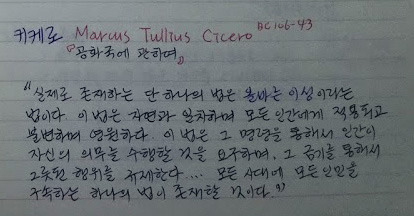 키케로 Marcus Tullius Cicero BC106-43
『공화국에 관하여』
"실제로 존재하는 단 하나의 법은 올바른 이성이라는
법이다. 이 법은 자연과 일치하며 모든 인간에게 적용되고
불변하며 영원하다. 이 법은 그 명령을 통해서 인간이
자신의 의무를 수행할 것을 요구하며, 그 금기를 통해서
그릇된 행위를 규제한다... 모든 시대에 모든 인민을
구속하는 하나의 법이 존재할 것이다."